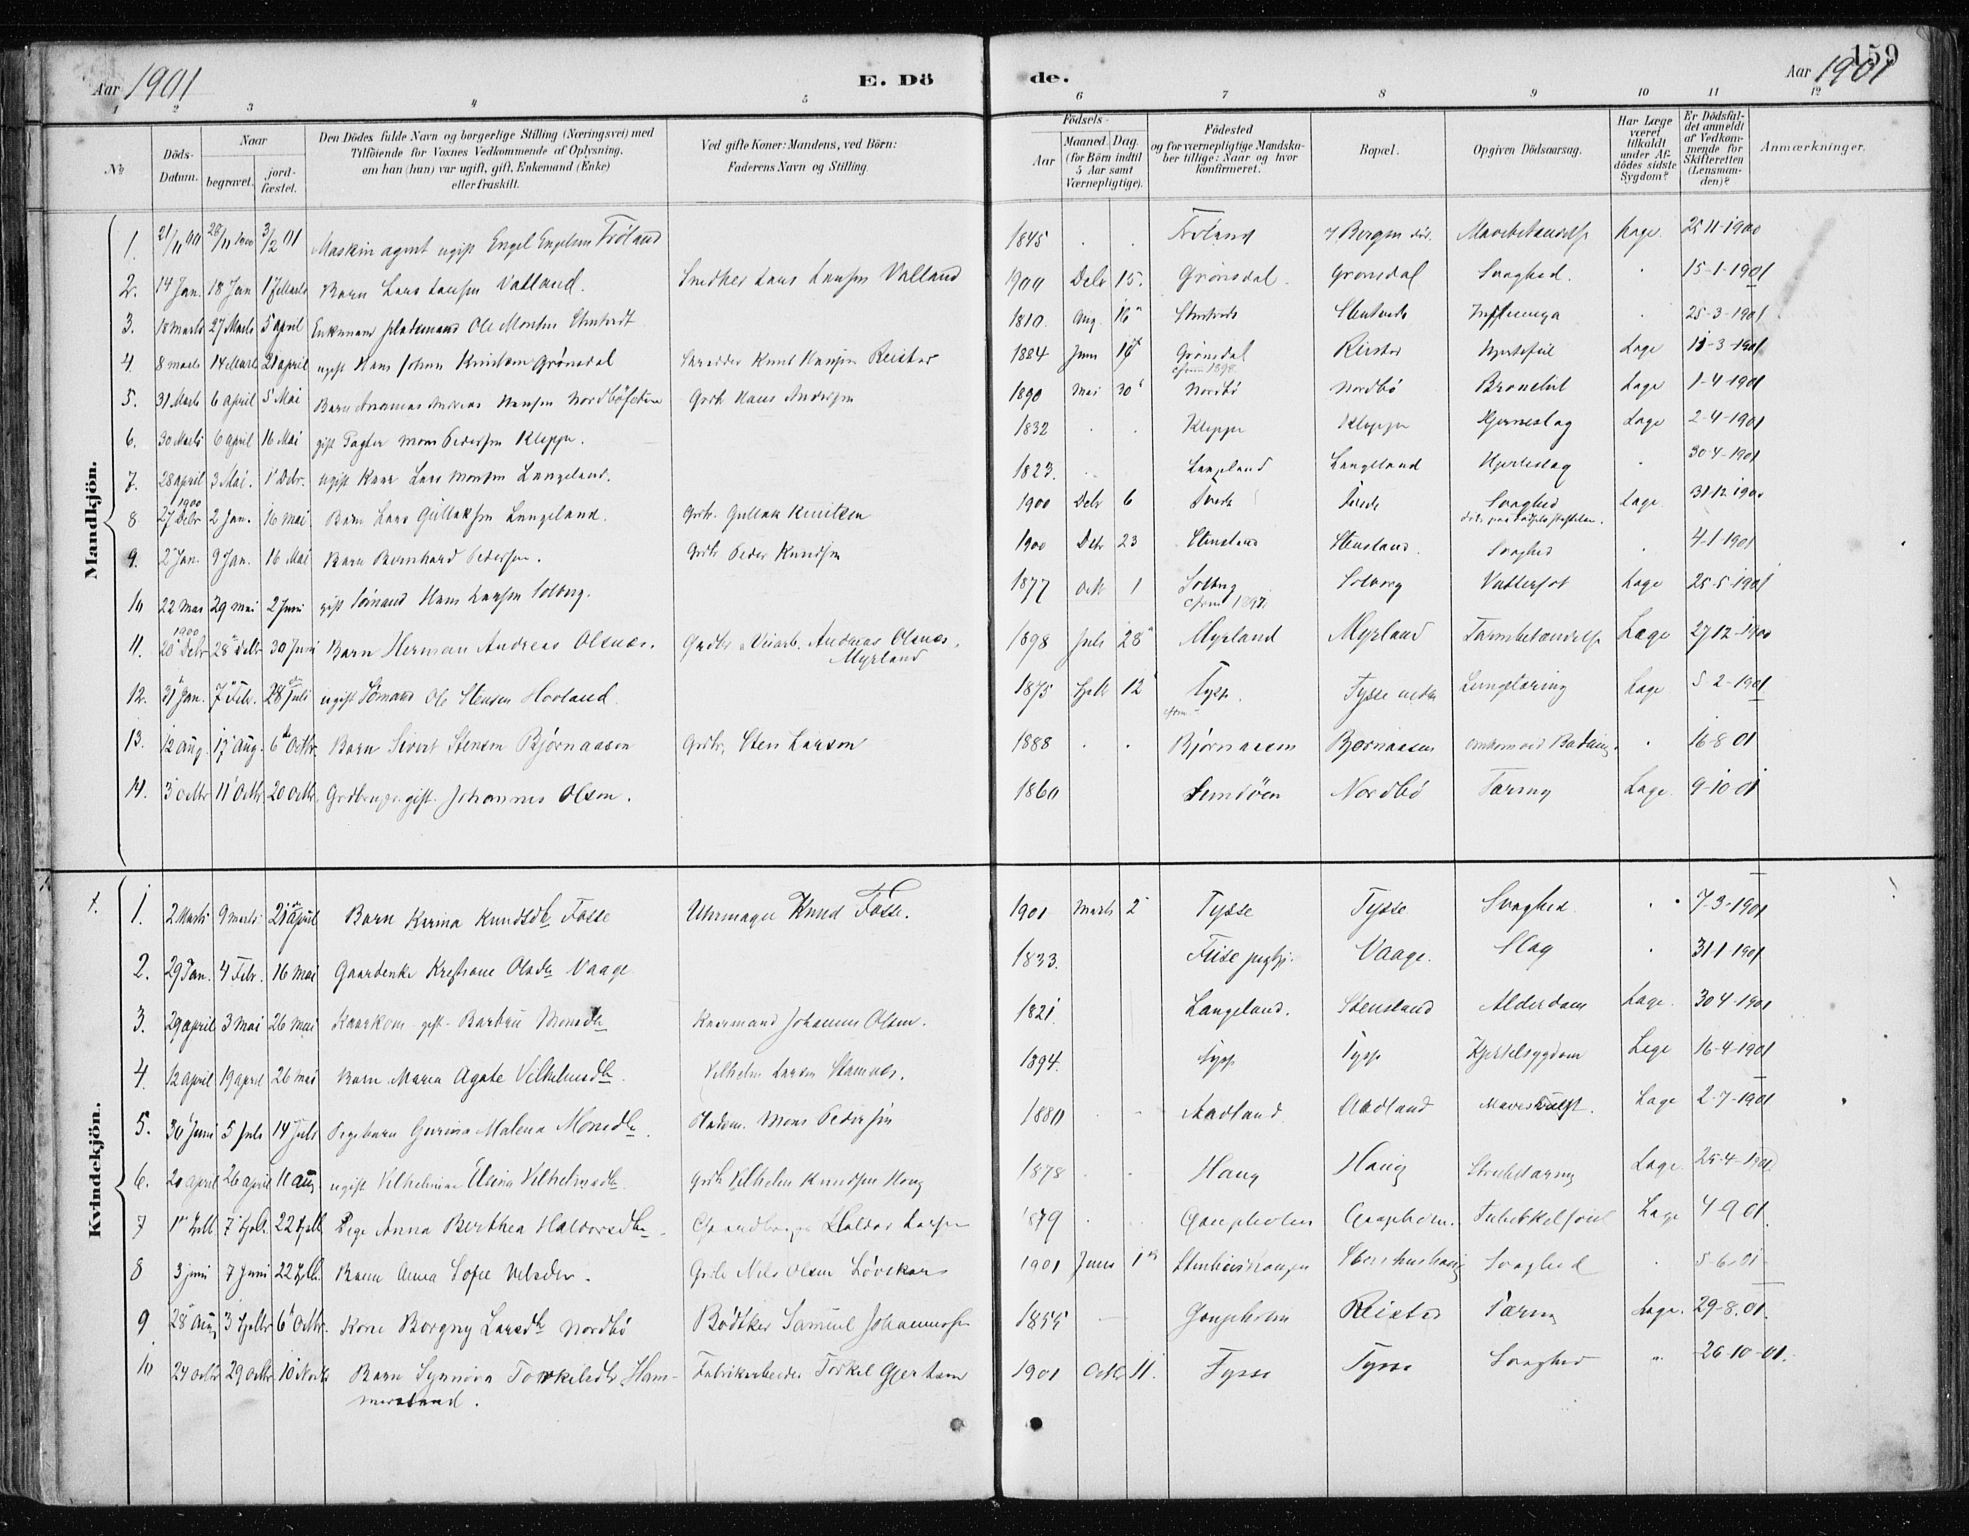 159
Aar 1901
E. Dö
de.
Aar 1901
1 2 3 4 5 6 7 8 9 10 11 12
No
Döds-Datum.
Naar
begravet.
jord-fæstet.
Den Dödes fulde Navn og borgerlige Stilling (Næringsvei) med
Tilföiende for Voxnes Vedkommende af Oplysning,
om han (hun) var ugift, gift, Enkemand (Enke)
eller fraskilt.
Ved gifte Koner: Mandens, ved Börn:
Faderens Navn og Stilling.
Födsels-
Aar
Maaned. Dag.
(for Börn indtil
5 Aar samt
Værnepligtige).
Födested
og for værnepligtige Mandska-
ber tillige: Naar og hvor
konfirmeret.
Bopæl.
Opgiven Dödsaarsag.
Har Læge
været
tilkaldt
under Af-
dödes sidste
Sygdom?
Er Dödsfal-
det anmeldt
af Vedkom-
mende for
Skifteretten
(Lensman-
den)?
Anmærkninger.
Mandkjön.
1. 21/11 00 28/11 1900 3/2 01 Maskinagent ugift Engel Engelsen Tröland 1845 Tröland Bergen 25-11-1900
2. 14 Jan. 18 Jan 17 Marts Barn Lars Larsen Valland. Snedker Lars Larsen Valland 1900 Debr 15. Grönsdal. Grönsdal Svaghed. 15-1-1901
3. 18 Marts 27 Marts 5 april Enkemand Ole Monsen 1810. Aug. 16 Influenza 25-3-1901
4. 8 marts 14 Marts 21 april ugift Hans Johan Knudsen Grönsdal Skrædder Knud Hansen Reistad 1884 Juni Grönsdal Reistad Hjertefeil Læge 11-3-1901
5. 31 Marts 6 april 5 Mai Barn Andreas Hansen Gbrk Hans Andersen 1890 Mai 30 Nordbö Nordbö Læge 1-4-1901
6. 30 Marts 6 april 16 Mai gift Mons Pedersen Kleppe. 1832 Kleppe Kleppe Hjerneslag Læge 2-4-1901
7. 28 april 3 Mai. 1 Debr. ugift Kaar Lars Monsen Langeland. 1823. Langeland Langeland Hjerteslag 30-4-1901
8 1900 27 Debr 2 Jan. 16 Mai Barn Lars Gullaksen Langeland. Gbrk. Gullak Knudsen 1900 Debr 6 Svaghed Læge 31-12-1900
9. 2 Jan. 9 Jan. 16 Mai Barn Bernhard Pedersen. Gbrk Peder Knudsen 1900 Debr 23 Stensland Stensland. Svaghed 4-1-1901
10 22 Mai 29 mai 2 Juni gift Sömand Hans Larsen Solberg. 1877 Octb 1 Solberg Solberg Vattersot Læge 25-5-1901
11. 1900 20 Debr 28 Debr 30 Juni Barn Herman Andreas Olsnes. Andreas Olsnes, Myrland 1898 Juli 28 Myrland Myrland Tarmbetændelse Læge 27-12-1900
12. 31 Jan. 7 Febr. 28 Juli ugift Sömand Ole Stensen Hovland. 1875 Sept 12 Tysse. Tysse Lungetæring Læge 5-2-1901
13. 12 Aug. 17 Aug. 6 Octbr. Barn Sivert Stensen Bjørnaasen Gbrk, Sten Larsen 1888 Bjørnaasen Bjørnaasen omkom ved Badning. 16-8 01
14. 3 Octbr 11 Octbr 20 octbr. Gbrk. gift. Johannes Olsen. 1860 Sundöen Nordbö Tæring Læge. 9-10-01
Kvindekjön.
1. 2 Marts 9 marts 21 April Barn Karina Knudsdtr Fosse Uhrmager Knud Fosse. 1901 Marts 2 Tysse Tysse Svaghed. 7-3-1901
2. 29 Jan. 4 Febr. 16 Mai Gaardenke Olsdtr Vaage 1833. Fuse Vaage. Slag 31-1-1901
3. 29 april 3 Mai 26 Mai Kaarkone gift Barbru Monsdtr Kaarmand Johannes Olsen. 1821. Langeland. Stensland Alderdom Læge. 30-4-1901
4. 12 april 19 april 26 Mai Barn Maria Agate Vilhelmsdtr. Vilhelm Larsen Stamnes. 1894. Tysse Tysse Kjertelsygdom Læge 16-4-1901
5. 30 Juni 5 Juli 14 Juli Pigebarn Gurina Malena Monsdtr. Mons Pedersen 1880 Aadland Aadland Læge 2-7-1901
6. 20 april 26 april 11 aug ugift Vilhelmine Elina Vilhelmsdtr. Gbrk Vilhelm Knudsen Haug 1878 Haug Haug Strubetæring Læge. 25-4-1901
7 1 Sept 7 Septb. 22 Septb Pige Anna Berthea Haldorsdtr. Gaardbruger Haldor Larsen 1879 Gaupholm Gaupholm. Læge 4-9-01.
8 3 Juni 7 Juni 22 Septb. Barn Anna Sofie Nilsdtr. Gbrk Nils Olsen 1901 Juni 1 Svaghed 5-6-01
9 28 Aug 3 Septbr 6 Octbr. Kone Borgny Larsdtr Nordbö Bödtker Samuel Johannesen 1855 Gaupholm Reistad Tæring Læge. 29-8-01.
10 24 octbr 29 Octbr 10 Novb Barn Synnöva Torkilsdtr Ham-
merland. Fabrikarbeider Torkel Gjertsen 1901 Octb 11. Tysse Tysse Svaghed " 26-10-01.